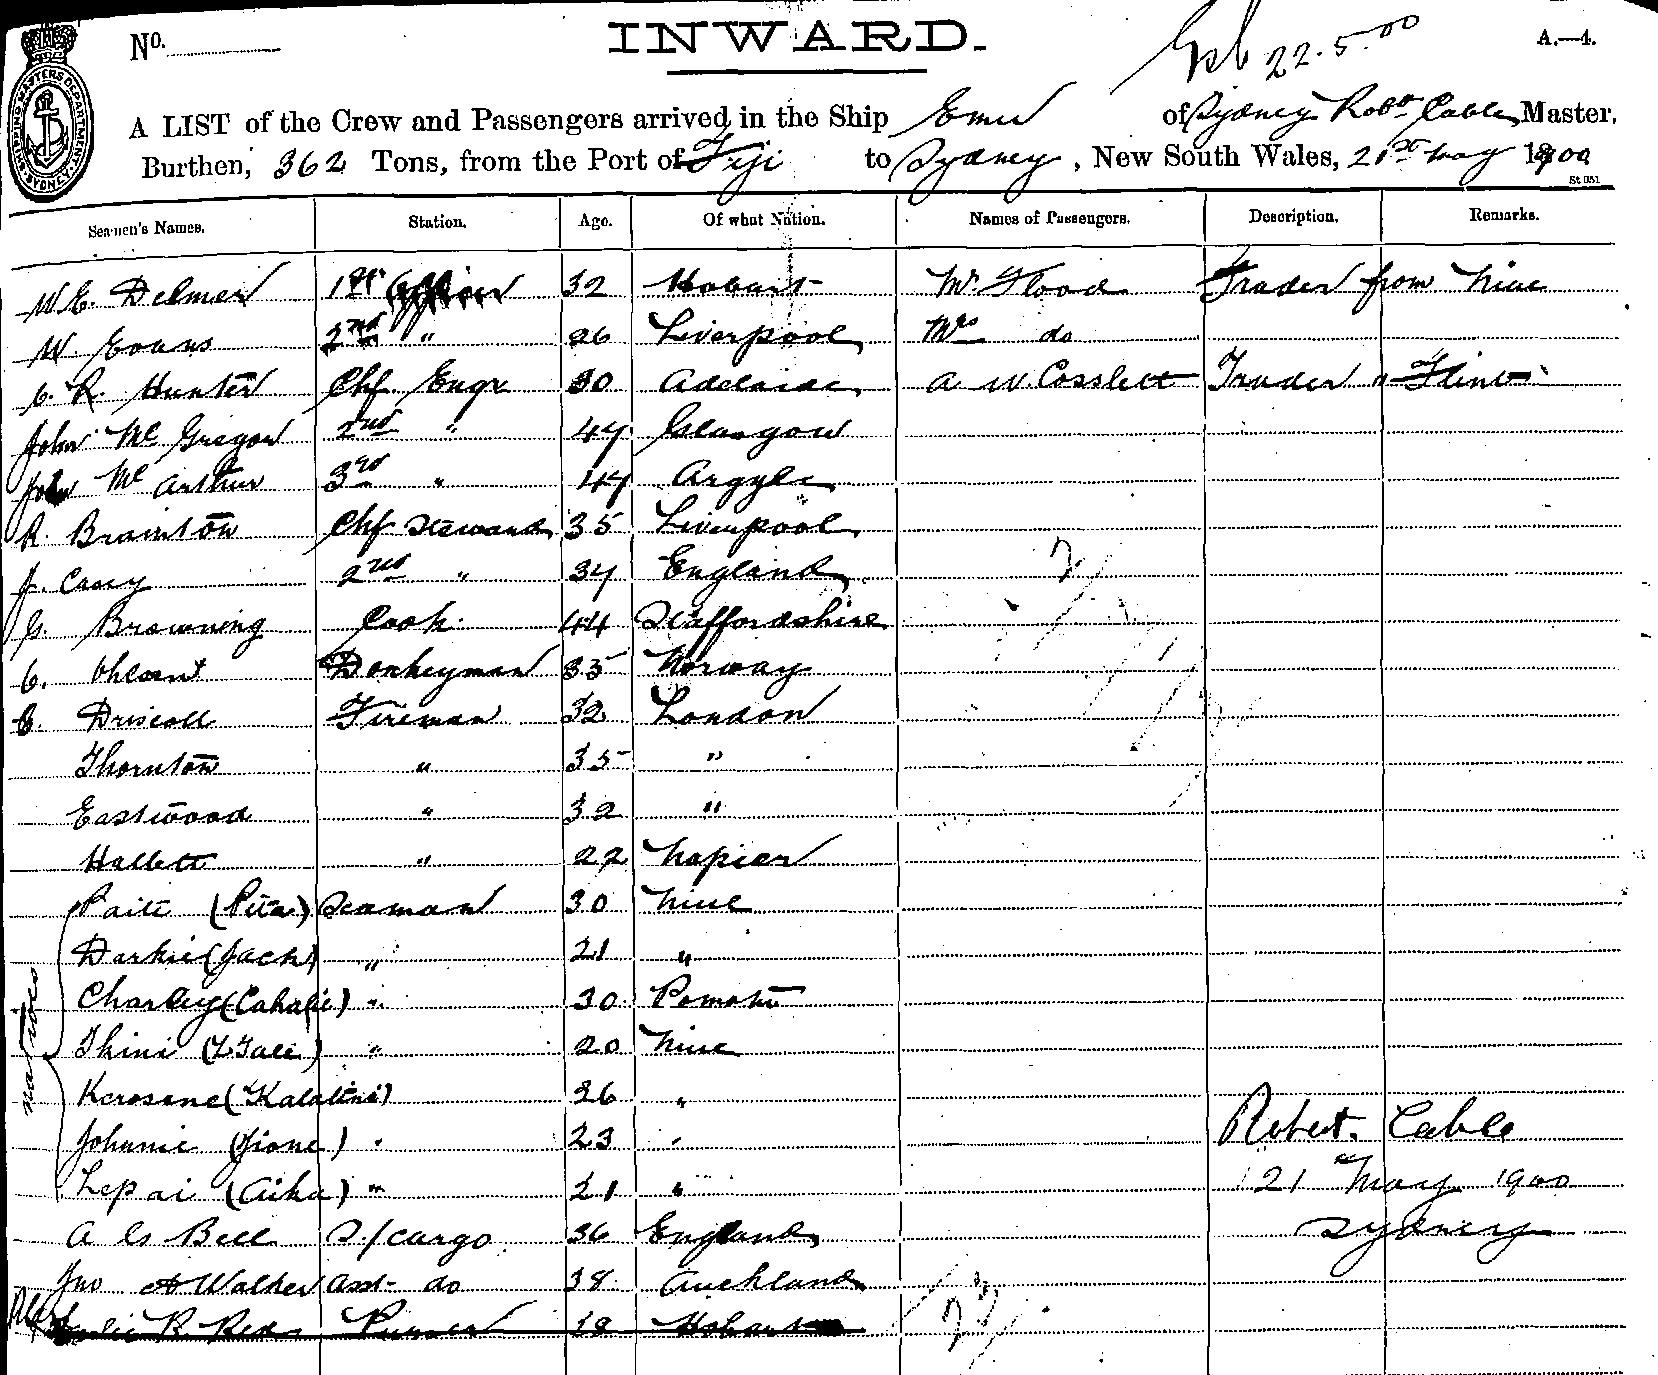 No.
INWARD.
22.5.00
A.—4.
SHIPPING MASTERS DEPARTMENT SYDNEY
A LIST of the Crew and Passengers arrived in the Ship Emu of Sydney Robt Cable Master,
Burthen, 362 Tons, from the Port of Fiji to Sydney, New South Wales, 21st May 1900
St 051
Seamen's Names. Station. Age. Of what Nation. Names of Passengers. Description. Remarks.
W.E. Delmer 1st Officer 32 Hobart Mr. Flood Trader from Niue
W. Evans 2nd " 26 Liverpool Mrs do
C. R. Hunter Chf. Engr 30 Adelaide A W. Cosslett Trader "
John Mc Gregor 2nd " 47 Glasgow
John Mc Arthur 3rd " 47 Argyle
R. Brainton Chf Steward 35 Liverpool
J. Casey 2nd " 34 England
G. Browning Cook. 44 Staffordshire
C. Donkeyman 35 Norway
C. Driscoll Fireman 32 London
Thornton " 35 "
Eastwood " 32 "
Hallett " 22 Napier
natives
Paiti (Pita) Seaman 30 Niue
Darkie (Jack) " 21 "
Charley ( " 30
Thini ( " 20 Niue
Kerosene ( 26 "
Johnnie (Sione) " 23 "
Lepai " 21 "
Robert Cable
21st May 1900
Sydney
A G Bell S/cargo 36 England
Jno A Walker asst do 38 Auckland
R. Rex Purser 18 Hobart
23